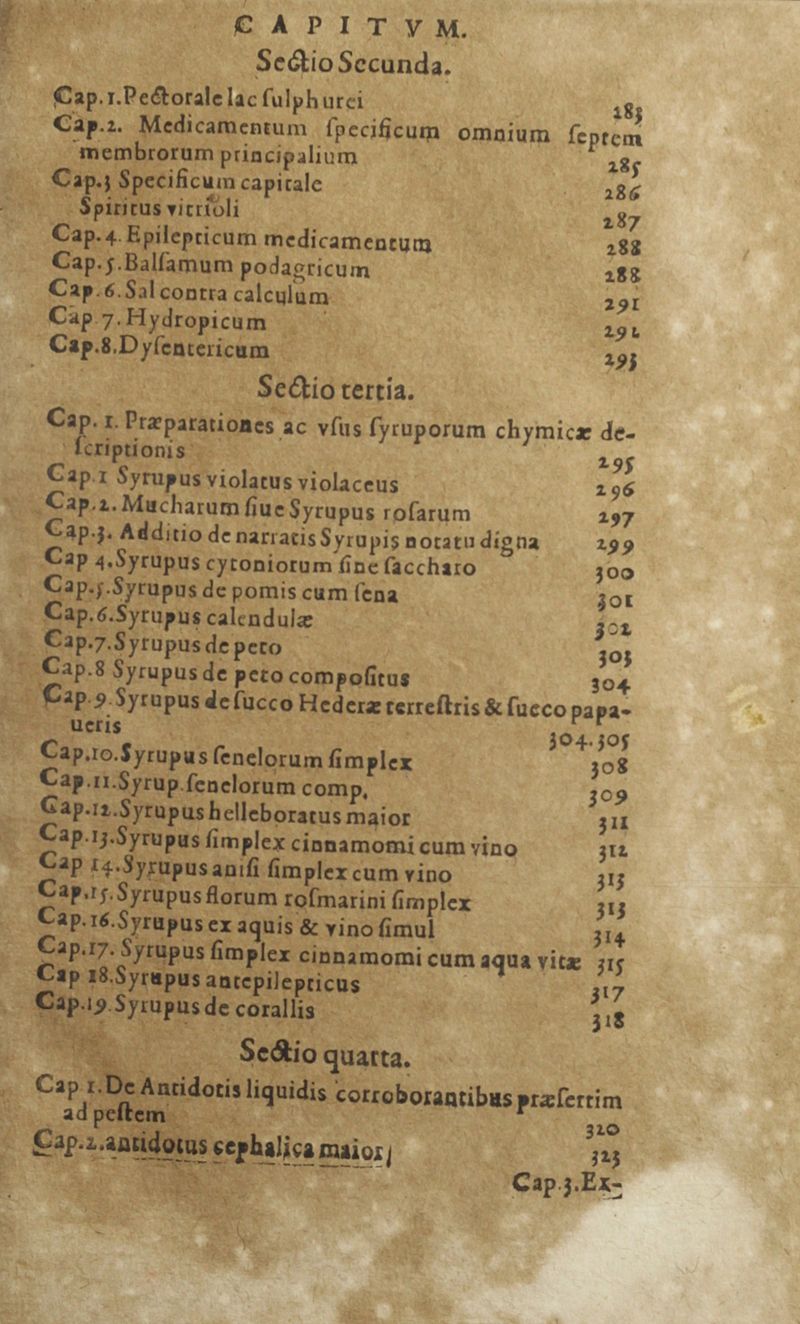 CAPITVM.
Sectio Secunda.
Cap.1.Pectorale lac ſulphurei 283
Cap.2. Medicamentum ſpecificum omnium ſeptem
membrorum principalium 285
Cap.3 Specificum capitale 286
Spiritus vitrioli 287
Cap.4.Epilepticum medicamentum 288
Cap.5.Balſamum podagricum 288
Cap.6.Sal contra calculum 291
Cap 7.Hydropicum 292
Cap.8.Dyſentericum 293
Sectio tertia.
Cap. 1. Præparationes ac vſus ſyruporum chymicæ de-
ſcriptionis 295
Cap.1 Syrupus violatus violaceus 296
Cap.2.Mucharum ſiue Syrupus roſarum 297
Cap.3. Additio de narratis Syrupis notatu digna 299
Cap 4.Syrupus cytoniorum ſine ſaccharo 300
Cap.5.Syrupus de pomis cum ſena 301
Cap.6.Syrupus calendulæ 302
Cap.7.Syrupus de peto 303
Cap.8 Syrupus de peto compoſitus 304
Cap.9.Syrupus de ſucco Hederæ terreſtris & ſucco papa-
ueris 304.305
Cap.10.Syrupus ſenelorum ſimplex 308
Cap.11.Syrup.ſenelorum comp. 309
Cap.12.Syrupus helleboratus maior 311
Cap.13.Syrupus ſimplex cinnamomi cum vino 312
Cap 14.Syrupus aniſi ſimplex cum vino 313
Cap.15.Syrupus florum roſmarini ſimplex 313
Cap.16.Syrupus ex aquis & vino ſimul 314
Cap.17. Syrupus ſimplex cinnamomi cum aqua vitæ 315
Cap 18.Syrupus antepilepticus 317
Cap.19.Syrupus de corallis 318
Sectio quarta.
Cap 1.De Antidotis liquidis corroborantibus præſertim
ad peſtem 320
Cap.2.antidotus cephalica maior 323
Cap.3.Ex-